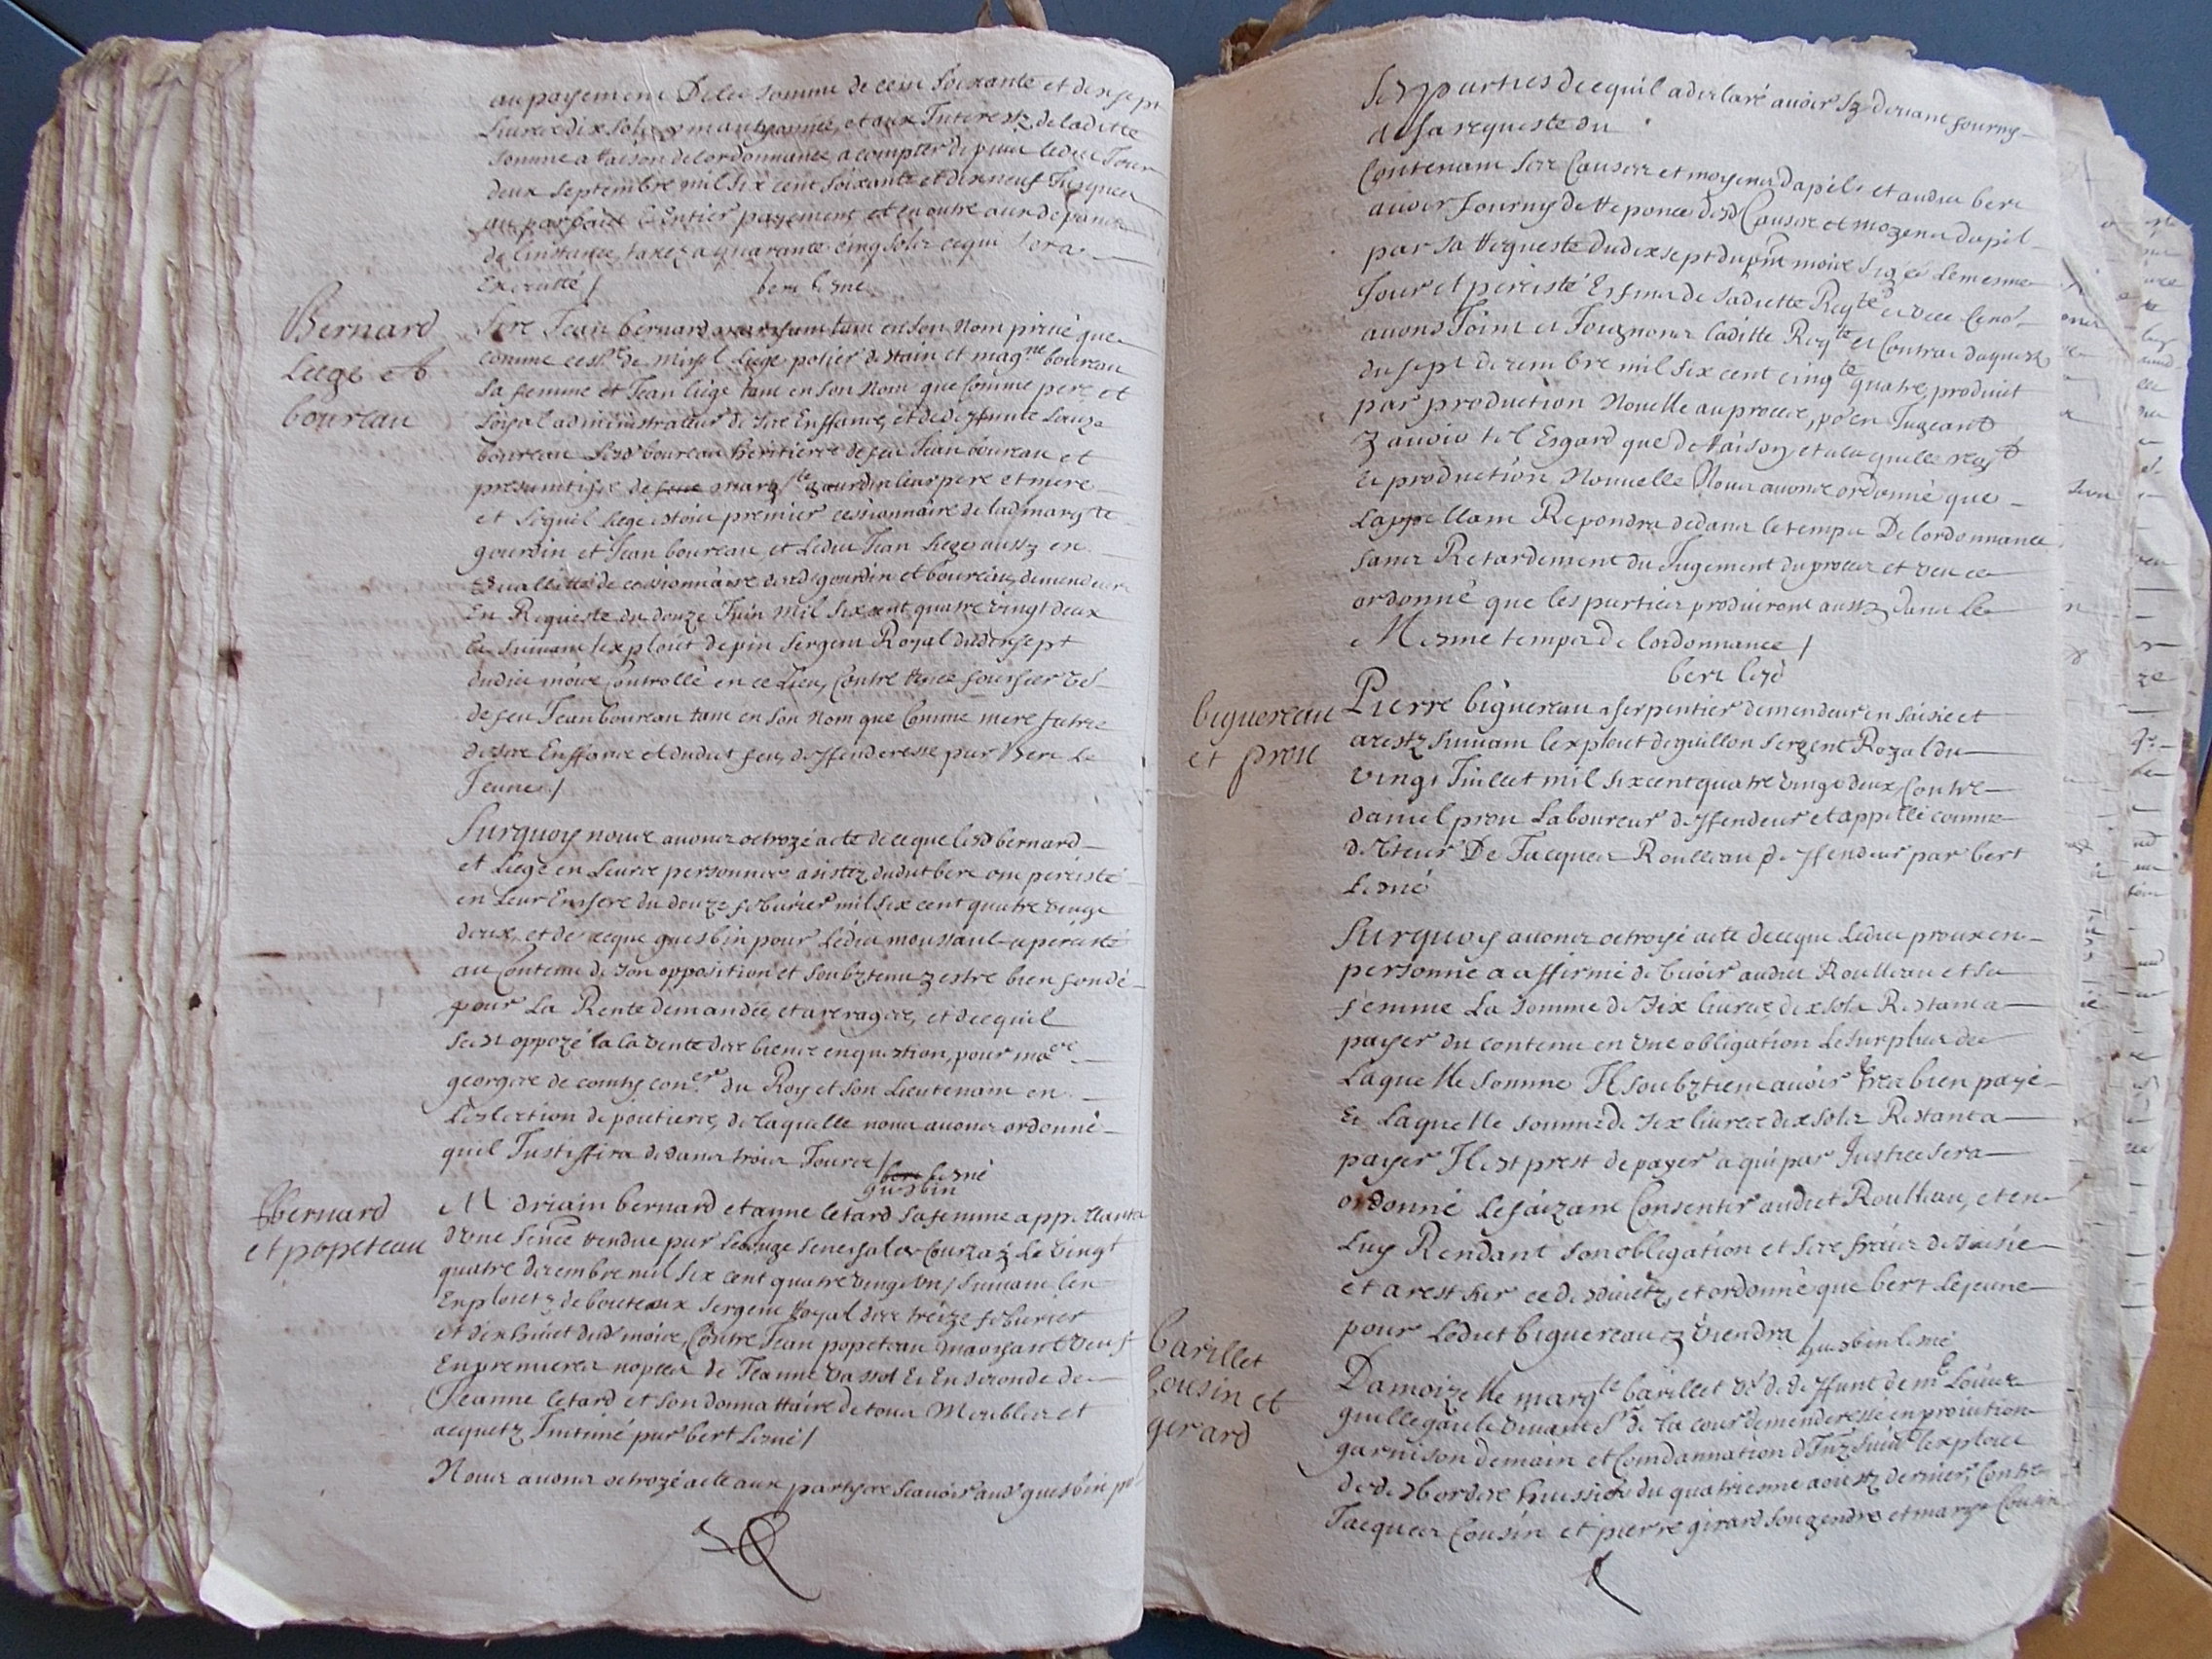 au payement De la somme de cent soixante et dix sept
Livres dix sols et aux Interestz de laditte
somme a Raison de lordonnance, a compter depuis ledit Jour
deux septembre mil six cent soixante et dix neuf Jusques
au parfait & Entier payement et en outre aux depans
de linstance, taxez a quarante cinq solz ce qui sera
Executté /
bert lesné
Bernard
Liege et
boureau
Sire Jean bernard marchant tant en son Nom privé que
comme cess.re de Liege potier destain et mag.ne boureau
sa femme et Jean liege tant en son Nom que Comme pere et
Loyal administrateur de ses Enffans, et de deffunte
boureau lesd boureau heritieres de feu Jean boureau et
presumtifve de marg.te gourdin leur pere et mere
et liege estoit premier cessionnaire de lad marg.te
gourdin et Jean boureau, et Ledit Jean liege aussy en
quallitté de cessionnaire desd gourdin et boureau, demendeurs
En Requeste du douze Juin mil six cent quatre vingt deux
& suivant lexploit de pin sergent Royal du dix sept
dudit mois Controllé en ce Lieu, Contre
de feu Jean boureau tant en son nom que Comme mere tutrice
de ses Enffans et dudit feu, deffenderesse par Bert Le
Jeune /
Surquoy nous avons octroyé acte de ce que lesd bernard
et Liege en Leurs personnes asistez dudit bert ont percisté
en Leur du douze febvrier mil six cent quatre vingt
deux, et de ce que guesbin pour Ledit moussault a percisté
au Contenu de son opposition et soubztenu y estre bien fondé
pour La Rente demandée, et arerages, et de ce quil
sest oppozé a la vente des biens en question, pour
georges de con.er du Roy et son Lieutenant en
Leslection de poitiers, de laquelle nous avons ordonné
quil Justiffira dedans trois Jours /
bert lesné
guesbin
bernard
et popeteau
M driain bernard et anne letard sa femme appellants
dune sen.ce Rendue par Le Juge seneschal de Le vingt
quatre decembre mil six cent quatre vingt un, suivant les
Exploitz de bouteaux sergent Royal des treize febvrier
et dix huict dud mois, Contre Jean popeteau marchant veuf
En premieres nopces de Jeanne vassot & En seconde de
Jeanne letard et son donnattaire de tous Meubles et
acquetz Jntimé par bert Lesné /
Nous avons octroyé acte aux partyes scavoir aud guesbin pr
Sesd parties de ce quil a declaré avoir cy devant fourny
de sa requeste du
Contenant ses Causes et moyens dapel et audit bert
avoir fourny de Reponce ausd Causes et moyens dapel
par sa Requeste du dix sept du p.nt mois le mesme
Jour et percisté Es fins de saditte Req.te
avons Joint et Joignons laditte Req.te et Contrat daquest
du sept decembre mil six cent cinq.te quatre, produit
par production Nouvelle au proces, po.r en Jugeant
y avoir tel Esgard que de Raison, et a laquelle req.te
& production Nouvelle Nous avons ordonné que
Lappellant Repondra dedans le temps De lordonnance
sans Retardement du Jugement du proces et
ordonné que les parties produiront aussy dans le
Mesme temps de lordonnance /
bert lesné
biguereau
et prou
Pierre biguereau serpentier demendeur en saisie et
arestz suivant lexploit de guillon sergent Royal du
vingt Juillet mil six cent quatre vingt deux, Contre
daniel prou Laboureur deffendeur et appellé comme
debteur De Jacques Roulleau deffendeur par bert
Lesné
Surquoy avons octroyé acte de ce que Ledit proux en
personne a affirmé debvoir audit Roulleau et sa
femme La somme de six livres dix sols Restant a
payer du contenu en une obligation Le surplus de
Laquelle somme Il soubztient avoir tres bien payé
& Laquelle somme de six livres dix solz Restant a
payer Il est prest de payer a qui par Justice sera
ordonné Le faizant Consentir audit Roulleau, et en
Luy Rendant son obligation et ses frais de saisie
et arest sur ce desduictz, et ordonné que bert Lejeune
pour Ledit biguereau y viendra / guesbin lesné
barillet
Cousin et
gerard
Damoizelle marg.te barillet v.e de deffunt de m.e Louis
guillegault vivant S.r de la cour demenderesse en provition
garnison de main et Condannation suiv.t lexploit
de desbordes huissier du quatriesme aoustz dernier, Contre
Jacques Cousin et pierre girard son gendre et marg.te Cousin